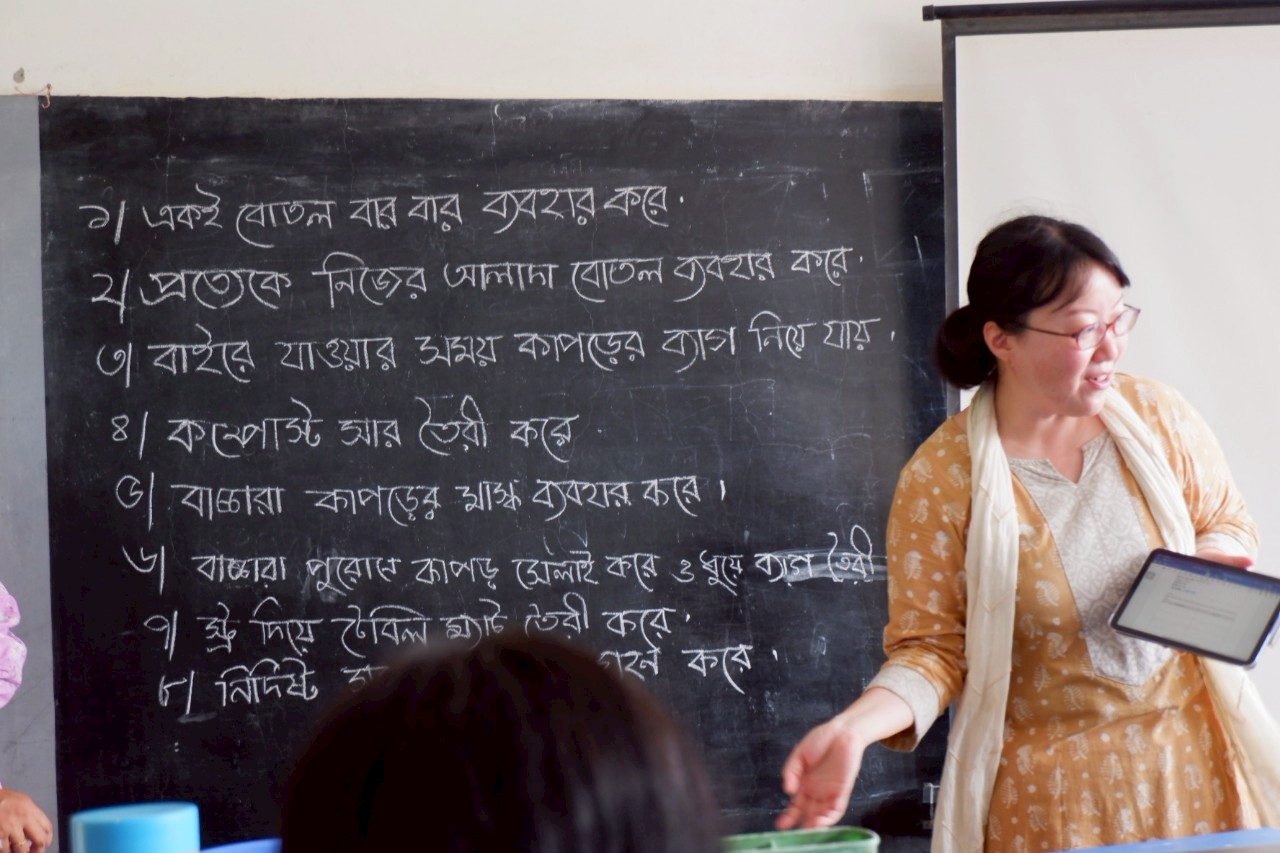 ১| একই বোতল বার বার ব্যবহার করে.
২| প্রত্যেকে নিজের আলাদা বোতল ব্যবহার করে.
৩| বাইরে যাওয়ার সময় কাপড়ের ব্যাগ নিয়ে যায়.
৪| কম্পোস্ট সার তৈরী করে.
৫| বাচ্চারা কাপড়ের মাস্ক ব্যবহার করে।
৬| বাচ্চারা পুরোনো কাপড় সেলাই করে ও ধুয়ে ব্যাগ তৈরী
৭| স্ট্র দিয়ে টেবিল ম্যাট তৈরী করে.
৮| নির্দিষ্ট করে.